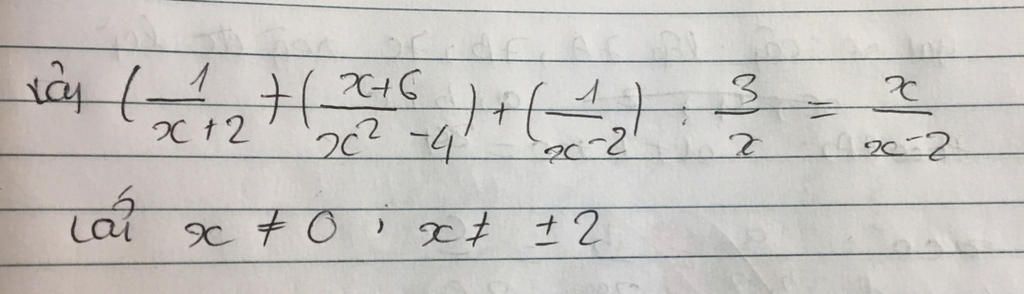 Vậy (1/(x+2)) + ((x+6)/(x² - 4)) + (1/(x-2)) : 3/x = x/(x-2)
với x ≠ 0 ; x ≠ ± 2